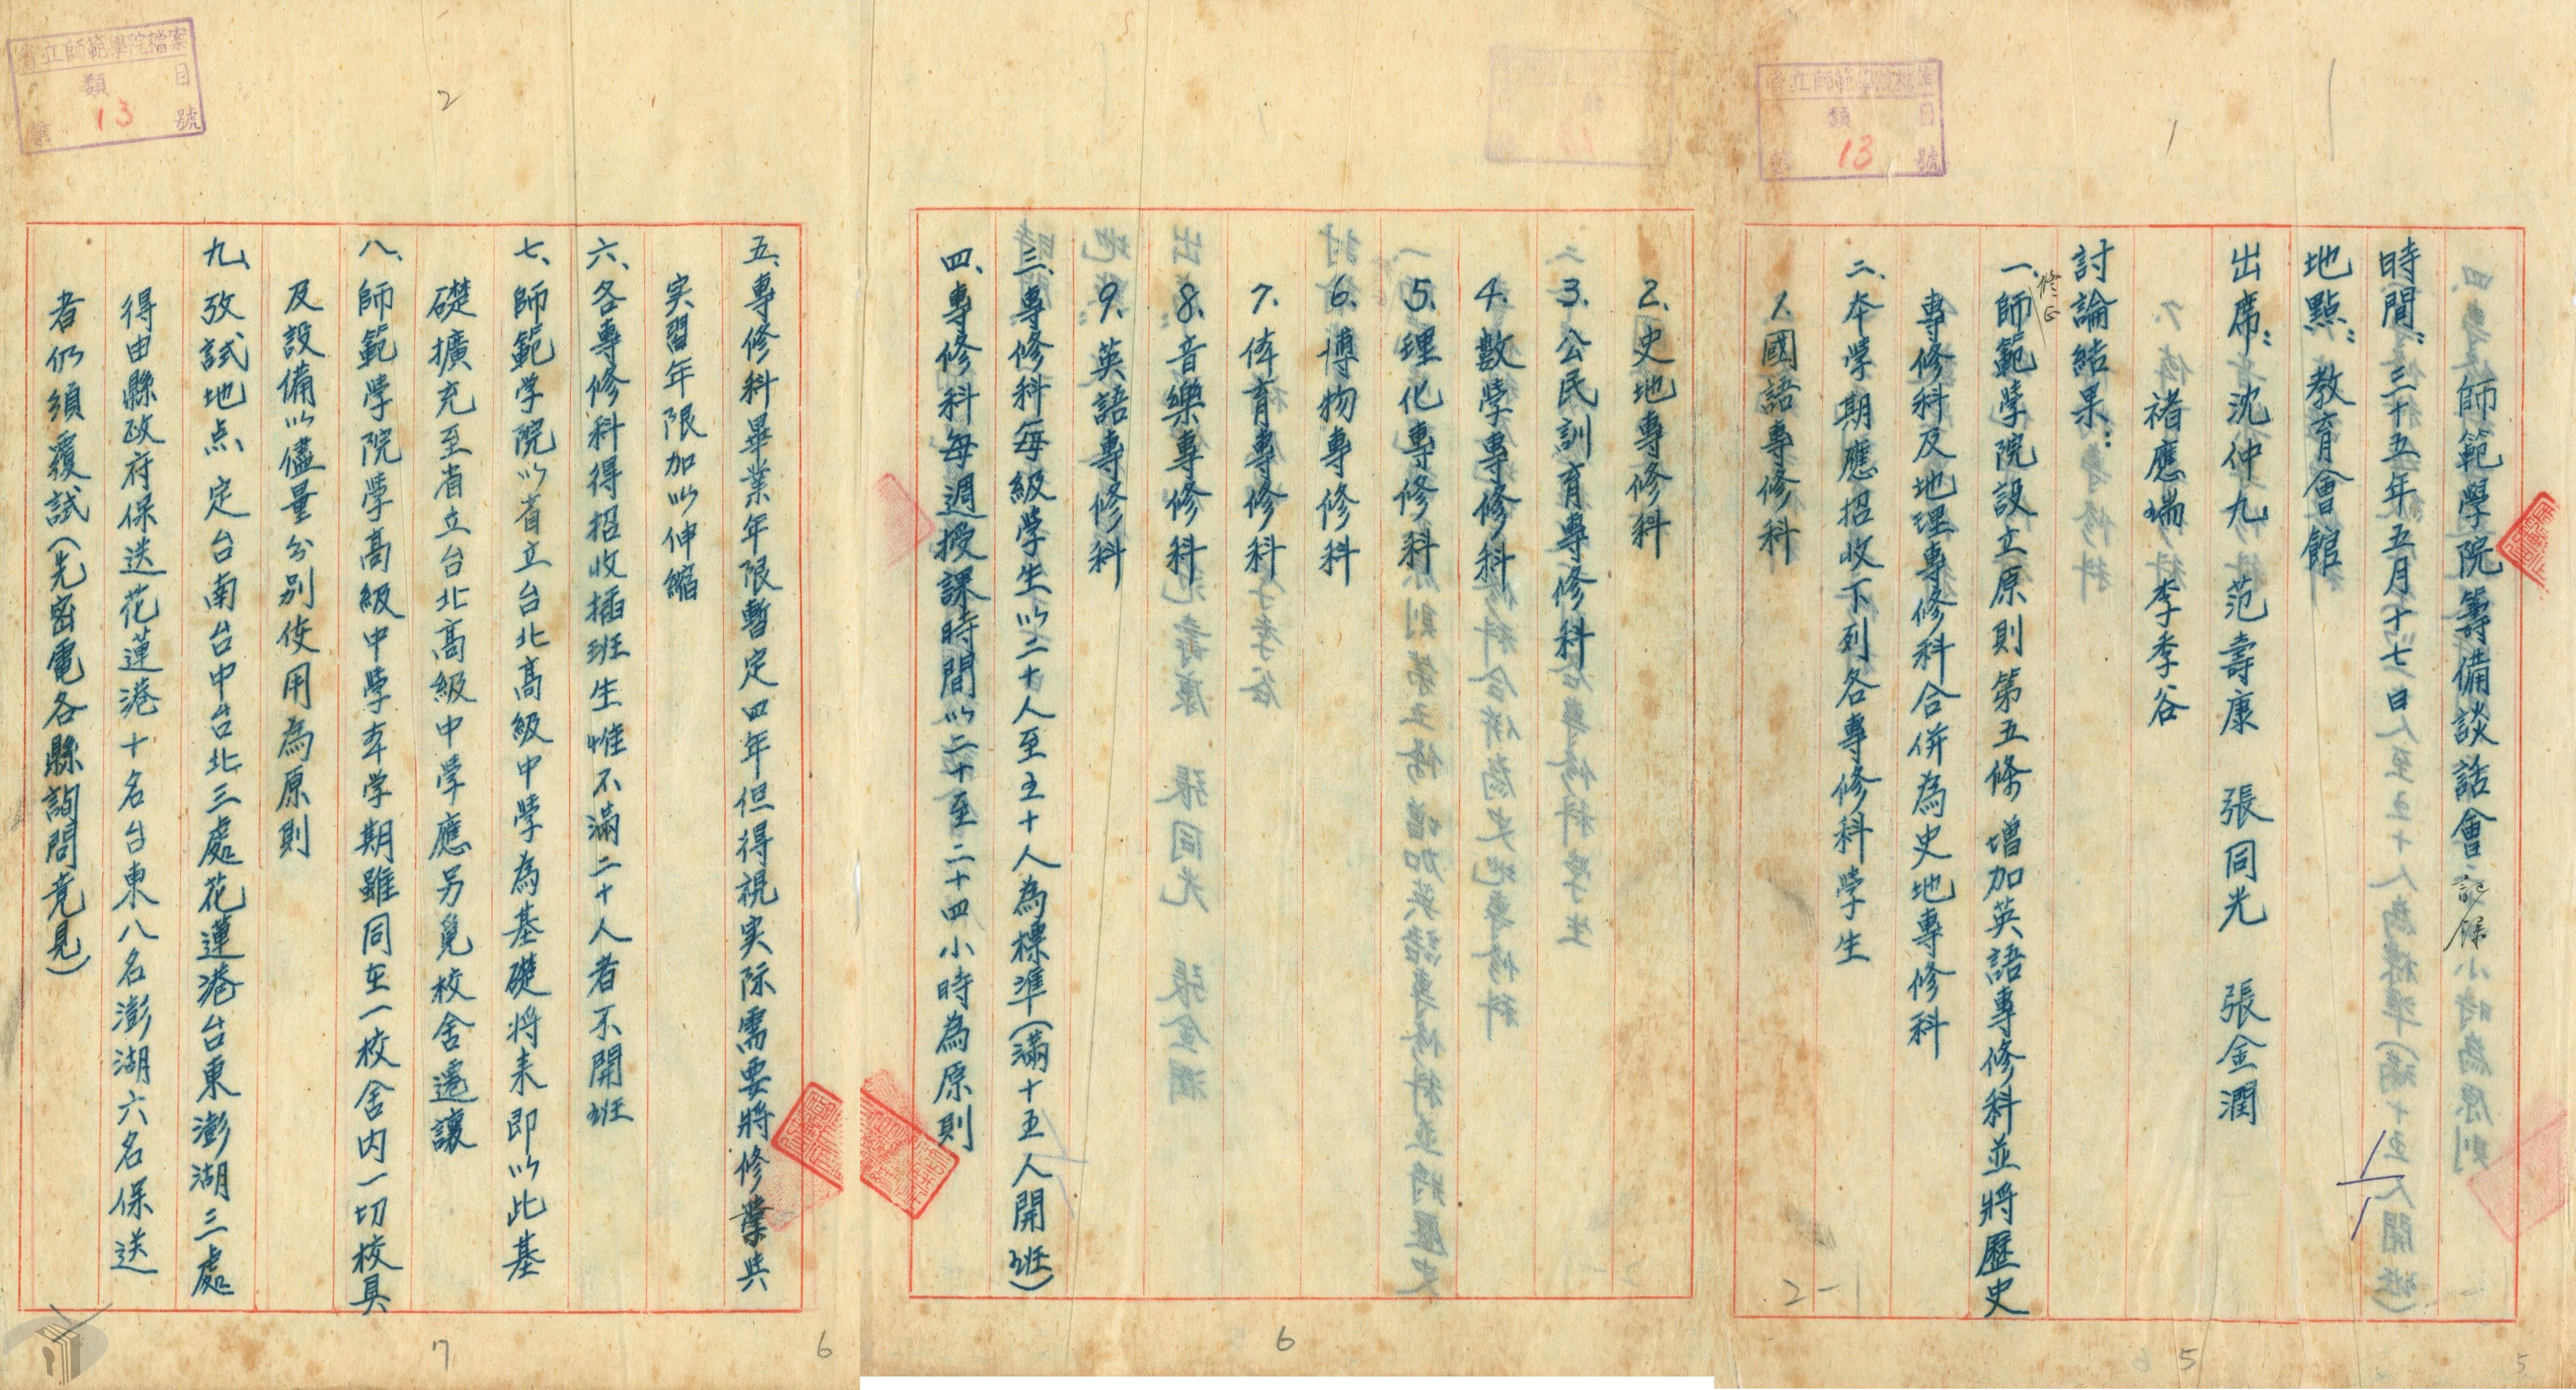 省立師範學院檔案
類 目
第 13 號
1
師範學院籌備談話會記錄
時間：三十五年五月十七日
地點：教育會館
出席：沈仲九 范壽康 張同光 張金潤
褚應瑞 李季谷
討論結果：
一、修正師範学院設立原則第五條增加英語專修科並將歷史
專修科及地理專修科合併為史地專修科
二、本学期應招收下列各專修科学生
1. 國語專修科
2-1
5
5
2. 史地專修科
3. 公民訓育專修科
4. 數学專修科
5. 理化專修科
6. 博物專修科
7. 体育專修科
8. 音樂專修科
9. 英語專修科
三、專修科每級学生以二十人至五十人為標準（滿十五人開班）
四、專修科每週授課時間以二十至二十四小時為原則
6
省立師範學院檔案
類 目
第 13 號
2
五、專修科畢業年限暫定四年但得視实际需要將修業與
实習年限加以伸縮
六、各專修科得招收插班生惟不滿二十人者不開班
七、師範学院以省立台北高級中学為基礎将来即以此基
礎擴充至省立台北高級中学應另覓校舍遷讓
八、師範学院学高級中学本学期雖同在一校舍内一切校具
及設備以儘量分別使用為原則
九、攷試地点定台南台中台北三處花蓮港台東澎湖三處
得由縣政府保送花蓮港十名台東八名澎湖六名保送
者仍須覆試（先密電各縣詢問竟見）
7
6